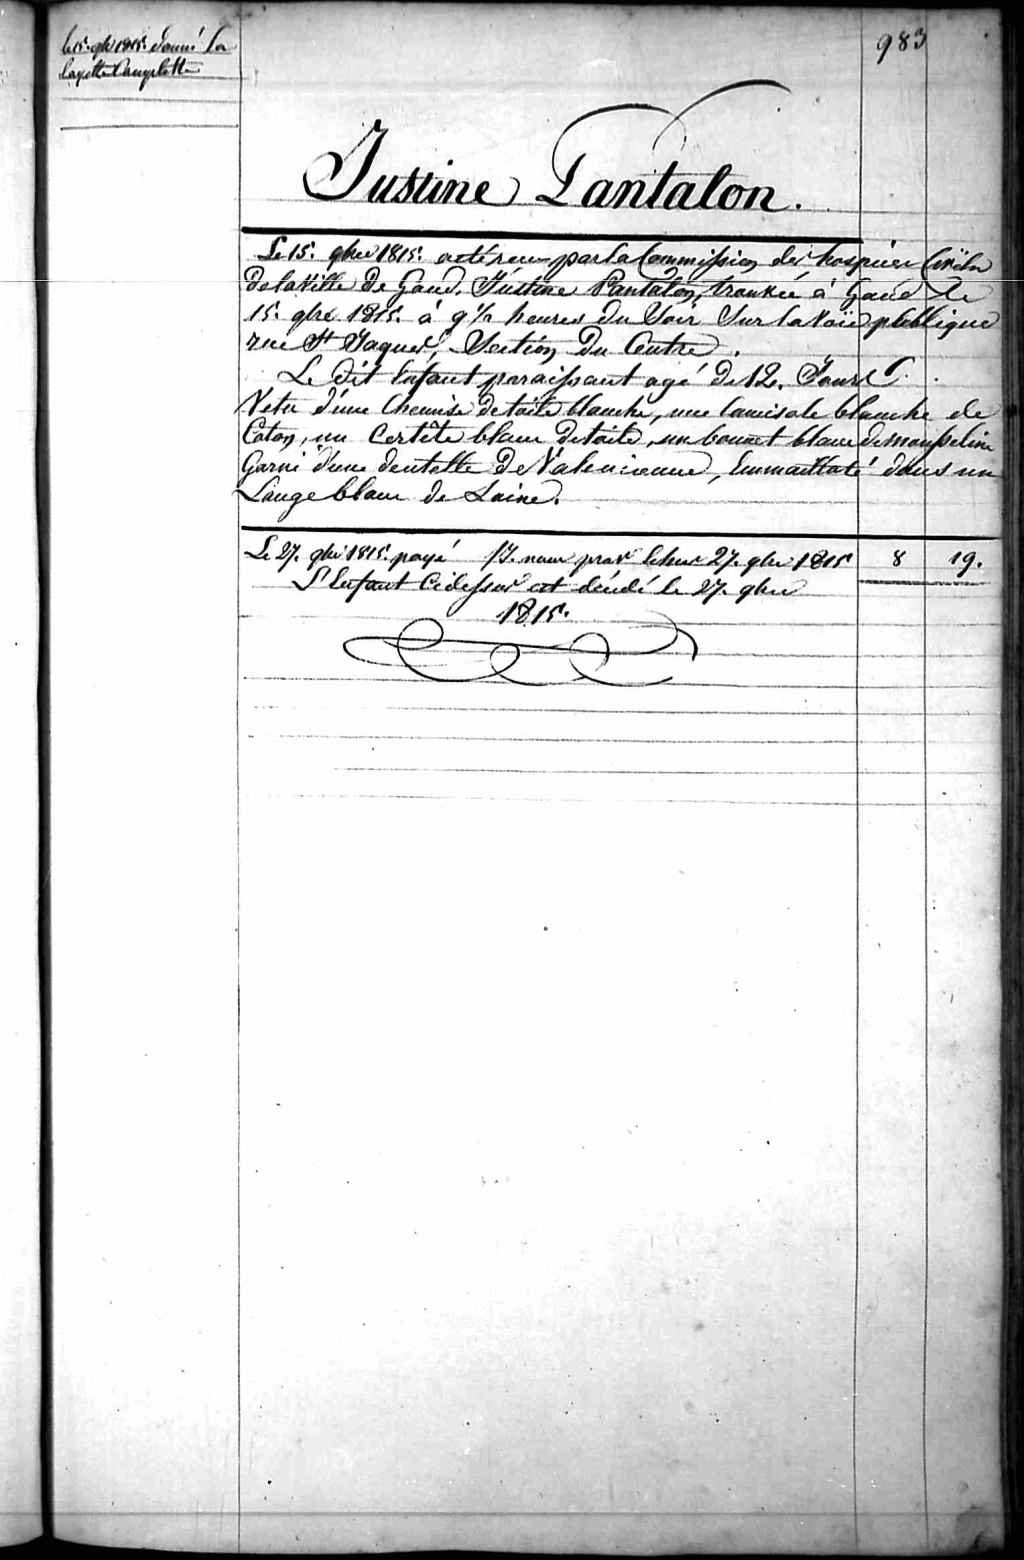 le 15. gbre 1815. donné la
layette Complette
983
Justine Pantalon.
Le 15. gbre 1815. a été reçu par la Commission des hospices Civils
de la Ville de Gand, Justine Pantalon, trouvée à Gand le
15. gbre 1815. à 9 ½ heures du Soir Sur la Voie publique
rue St Jaques, Section du Centre.
Le dit Enfant paraissant agé de 12. Jours
Vetu d'une Chemise de toile blanche, une Camisole blanche de
Coton, un Certête blanc de toile, un bonnet blanc de mousseline
Garni d'une dentelle de Valencienne, Emmailloté dans un
Lange blanc de Laine.
Le 27. gbre 1815. payé 27. gbre 1815 8 19.
L'Enfant Cidessus est décédé le 27. gbre
1815.